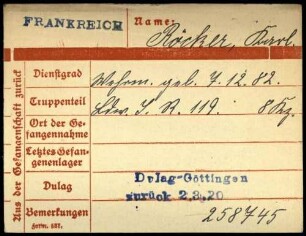 FRANKREICH Name:
Röcker, Karl.
Aus der Gefangenschaft zurück
Dienstgrad Wehrm. geb. 7.12.82.
Truppenteil Ldw. I. R. 119. 8 Kg.
Ort der Ge-
fangennahme
Letztes Gefan-
genenlager
Dulag Dulag-Göttingen
zurück 2.3.20
Bemerkungen 258745
Form. 687.